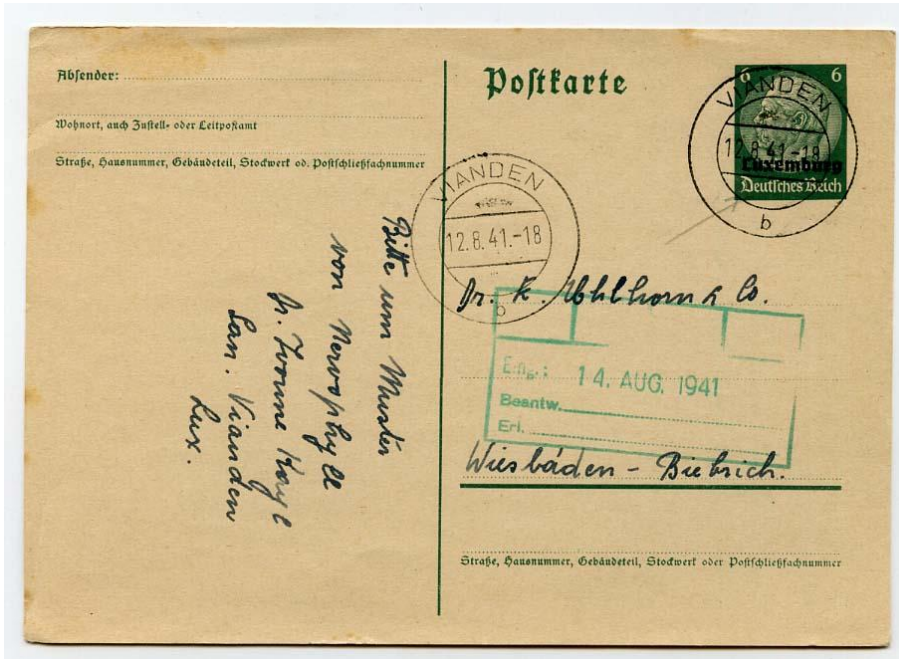 Absender:
Wohnort, auch Zustell- oder Leitpostamt
Straße, Hausnummer, Gebäudeteil, Stockwerk od. Postschließfachnummer
Bitte um Muster
von Nervophyll
Dr. Yvonne Kayl
San. Vianden
Lux.
VIANDEN
12.8.41.-18
b
Postkarte
6 6
Luxemburg
Deutsches Reich
VIANDEN
12.8.41-18
b
Dr. K. Uhlhorn & Co.
Eing.: 14. AUG. 1941
Beantw.
Erl.
Wiesbaden - Biebrich.
Straße, Hausnummer, Gebäudeteil, Stockwerk oder Postschließfachnummer